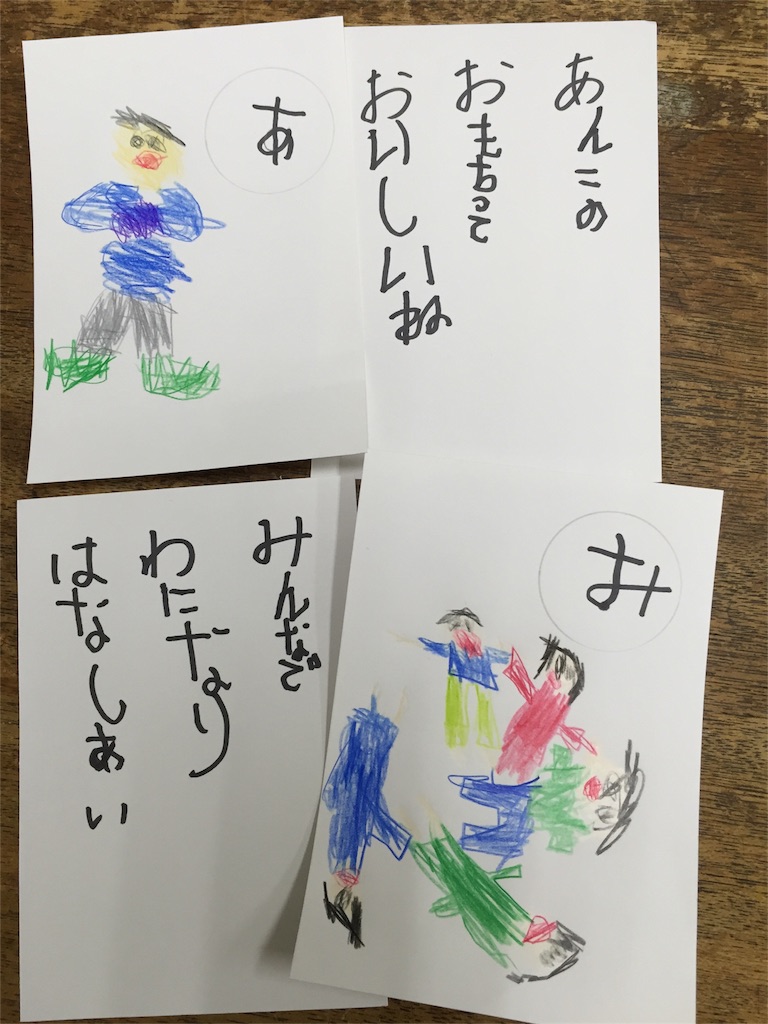 あ
あんこの
おもちって
おいしいね
みんなで
わになり
はなしあい
み